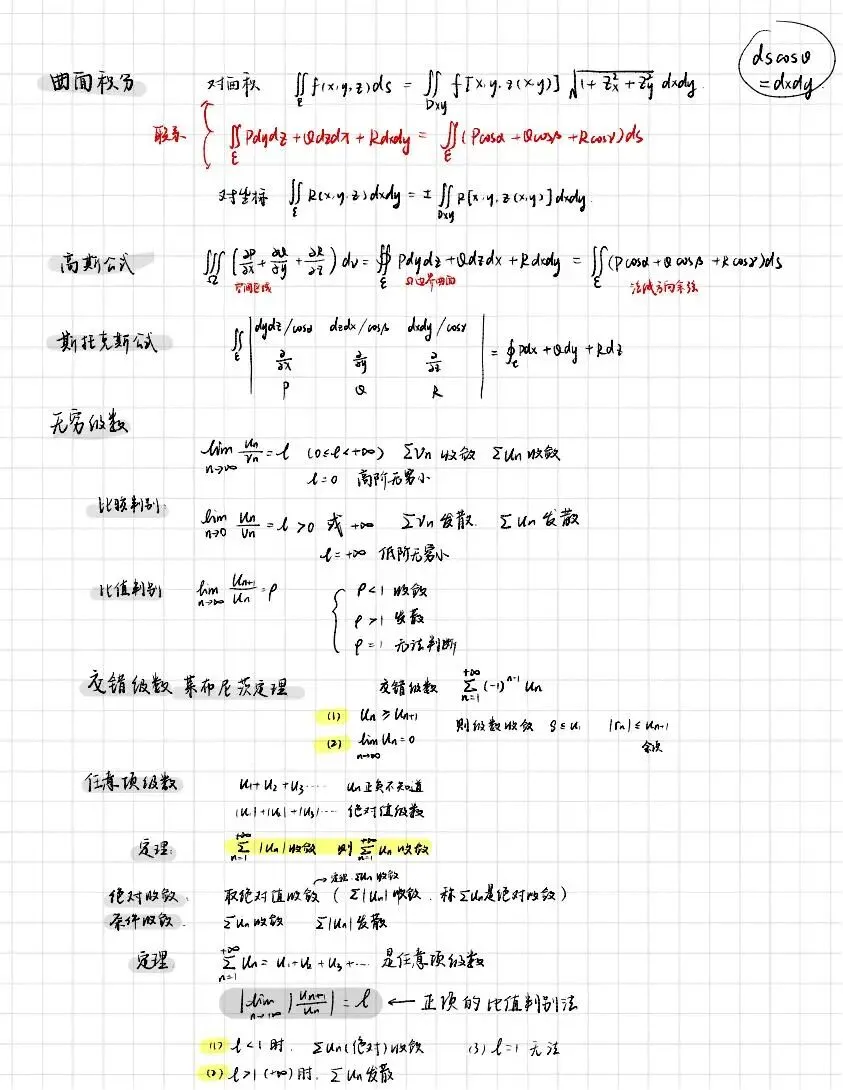 dscosθ
= dxdy
曲面积分 对面积 ∬_Σ f(x,y,z)ds = ∬_Dxy f[x,y,z(x,y)] √(1+Z²x+Z²y) dxdy.
联系 ∬_Σ Pdydz+Qdzdx+Rdxdy = ∬_Σ (Pcosα+Qcosβ+Rcosγ)ds
对坐标 ∬_Σ R(x,y,z)dxdy = ± ∬_Dxy R[x,y,z(x,y)]dxdy.
高斯公式 ∭_Ω (∂P/∂x+∂Q/∂y+∂R/∂z)dv = ∯_Σ Pdydz+Qdzdx+Rdxdy = ∬_Σ (Pcosα+Qcosβ+Rcosγ)ds
空间区域 Ω边界曲面 法线方向余弦
斯托克斯公式 ∬_Σ | dydz/cosα dzdx/cosβ dxdy/cosγ
∂/∂x ∂/∂y ∂/∂z
P Q R | = ∮_c Pdx+Qdy+Rdz
无穷级数
lim n→∞ Un/Vn = l (0≤l<+∞) ΣVn 收敛 ΣUn 收敛
l=0 高阶无穷小
比较判别: lim n→0 Un/Vn = l >0 或 +∞ ΣVn 发散. ΣUn 发散
l=+∞ 低阶无穷小
比值判别 lim n→∞ Un+1/Un = ρ { ρ<1 收敛
ρ>1 发散
ρ=1 无法判断
交错级数 莱布尼茨定理 交错级数 Σ_{n=1}^{+∞} (-1)^{n-1} Un
(1) Un ≥ Un+1 则级数收敛 S≤u₁ |rn| ≤ Un+1
(2) lim n→∞ Un=0 余项
任意项级数 U₁+U₂+U₃⋯⋯ Un正负不知道
|U₁|+|U₂|+|U₃|⋯ 绝对值级数
定理: Σ_{n=1}^{+∞} |Un|收敛 则 Σ_{n=1}^{+∞} Un 收敛
→定理 ΣUn 收敛
绝对收敛: 取绝对值收敛 (Σ|Un| 收敛. 称ΣUn是绝对收敛)
条件收敛: ΣUn 收敛 Σ|Un| 发散
定理: Σ_{n=1}^{+∞} Un = U₁+U₂+U₃+⋯ 是任意项级数
|lim n→∞ |Un+1/Un| = l ← 正项的比值判别法
(1) l<1 时. ΣUn(绝对)收敛 (3) l=1 无法
(2) l>1 (+∞) 时. ΣUn 发散